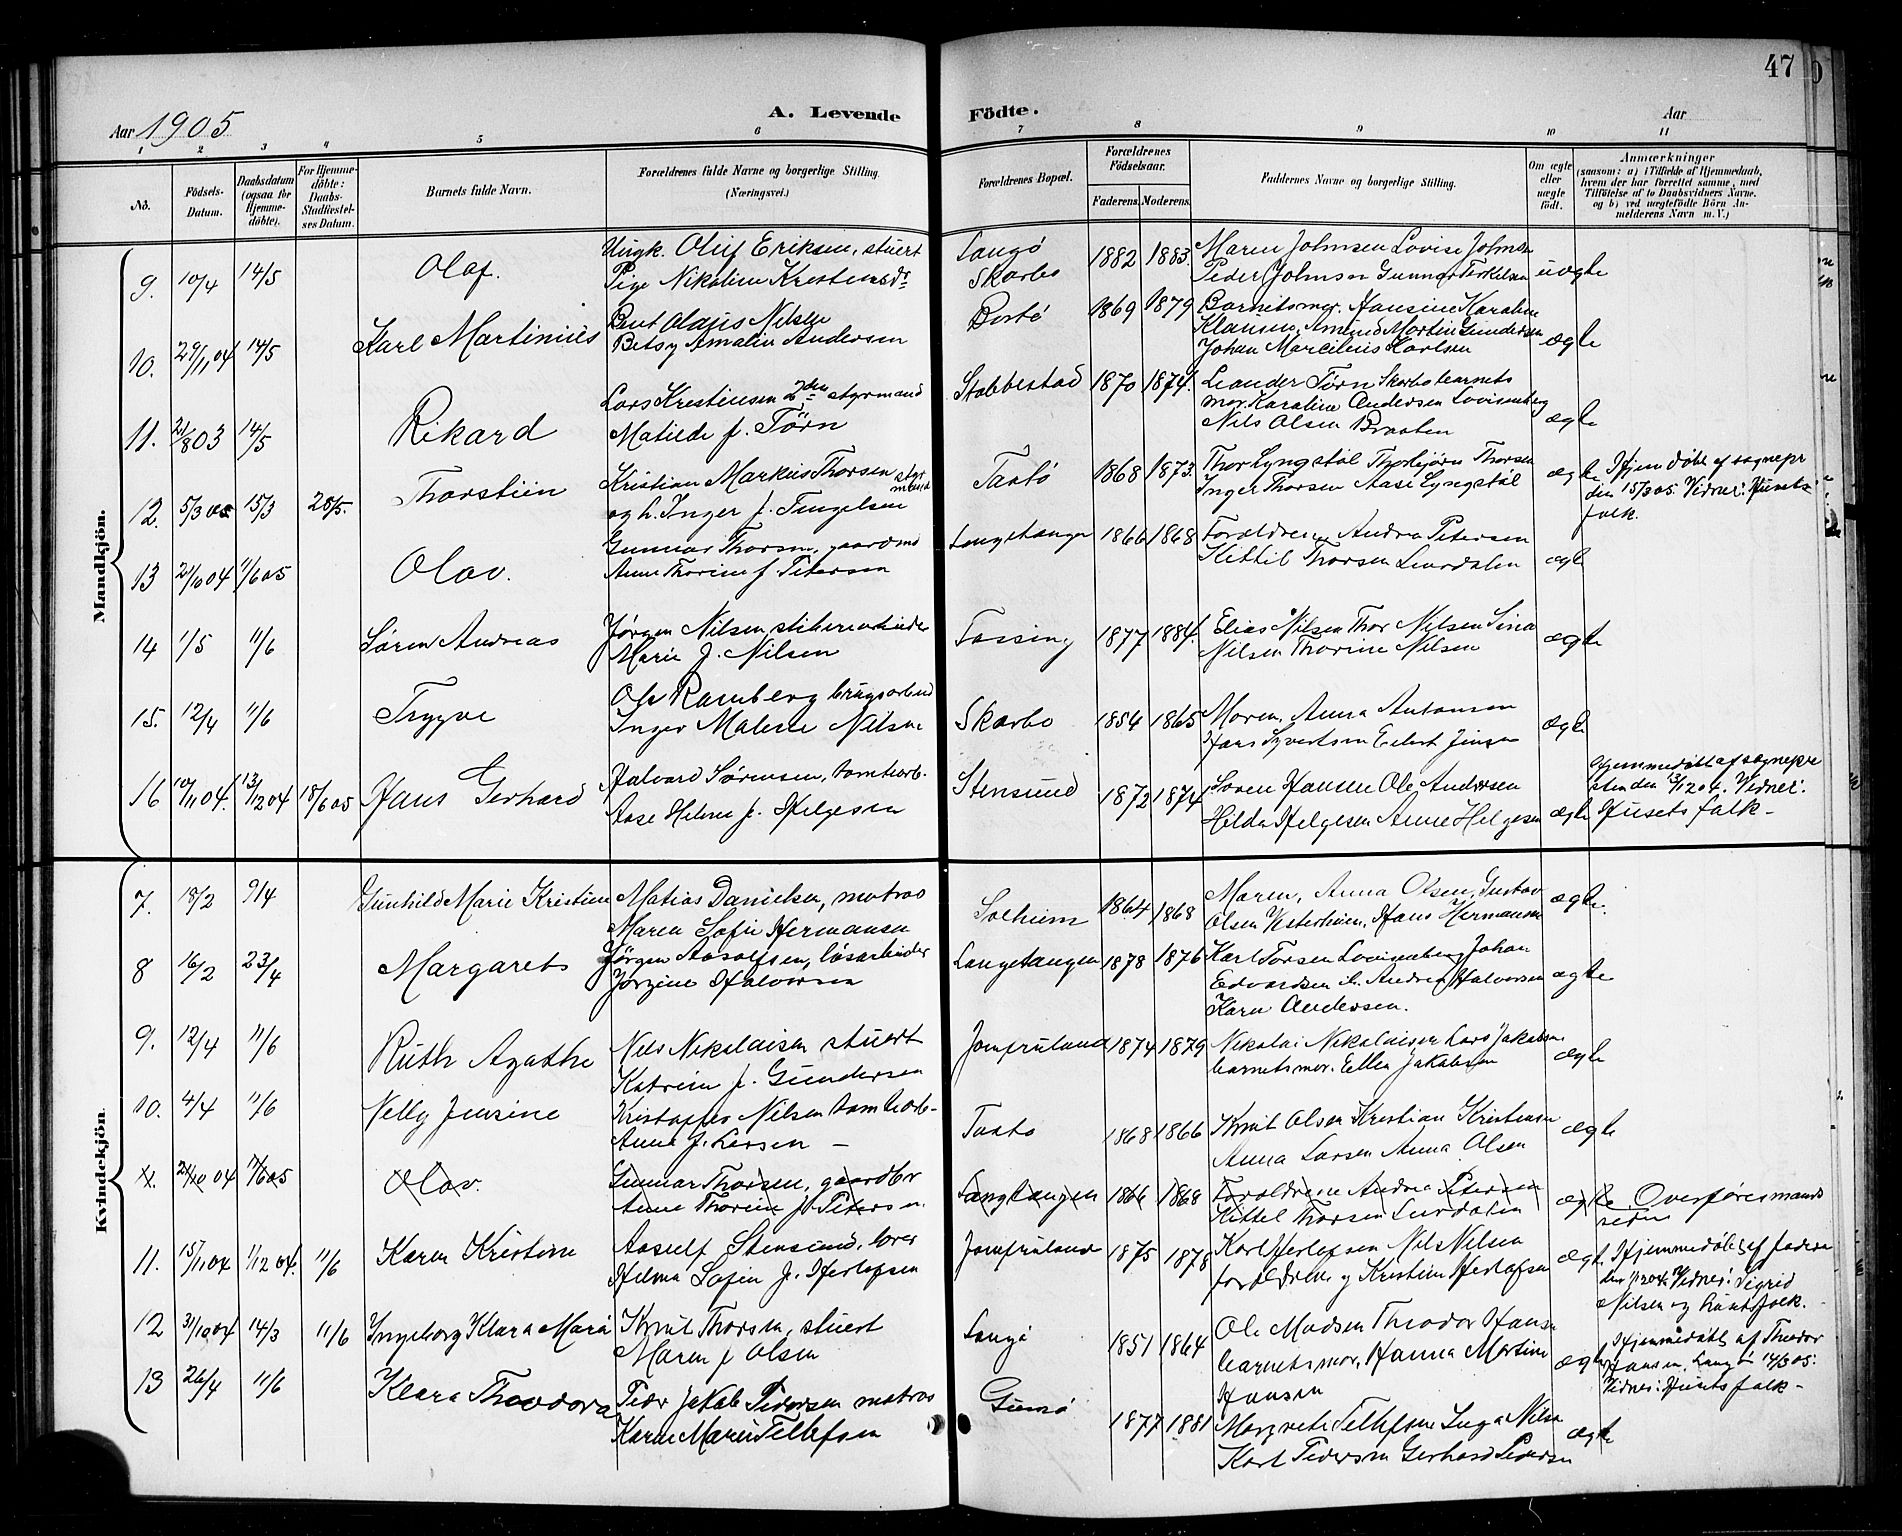 47
Aar 1905
A. Levende
Födte.
Aar
1 2 3 4 5 6 7 8 9 10 11
No.
Födsels-Datum.
Daabsdatum (ogsaa for Hjemme-döbte).
For Hjemme-döbte: Daabs-Stadfæstel-ses Datum.
Barnets fulde Navn.
Forældrenes fulde Navne og borgerlige Stilling. (Næringsvei.)
Forældrenes Bopæl.
Forældrenes Födselsaar.
Faderens. Moderens.
Faddernes Navne og borgerlige Stilling.
Om ægte eller uægte födt.
Anmærkninger
(saasom: a) i Tilfælde af Hjemmedaab,
hvem der har forrettet samme, med
Tilföielse af to Daabsvidners Navne.
og b) ved uægtefödte Börn An-
melderens Navn m. V.)
Mandkjön.
9. 10/4 14/5 Olaf.
Ungk. Oluf Eriksen, stuert
Pige Nikoline Kristensdr
Langö
Skarbo
1882 1883.
Maren Johnsen Lovise Johnsen
Peder Johnsen Gunnar Terkelsen
uægte
10. 29/11 04 14/5 Karl Martinius
Bent Olaus Nilsen
Betsy Amalie Andersen
Bortö 1869 1879
Barnets mor. Hansine Karoline
Klausen, Amund Martin Gundersen
Johan Marcilius Karlsen
ægte
11. 21/8 03 14/5 Rikard
Lars Kristensen 2den styrmand
Matilde f. Törn
Stabbestad 1870 1874.
Leander Törn Skarbo barnets
mor. Karoline Andersen Lovisenberg
Nils Olsen Braaten
ægte
12. 5/3 05 15/3 28/5. Thorstein
Kristian Markus Thorsen styrmand
og h. Inger f. Tengelsen
Taatö 1868 1873.
Thor Lyngstöl Thorbjörn Thorsen
Inger Thorsen Aase Lyngstöl
ægte
Hjemdöbt af sognepr
den 15/3 05. Vidner: Husets
folk.
13 21/10 04 11/6 05 Olav.
Gunnar Thorsen, gaardmd
Anne Thorine f. Petersen
Langetangen 1866 1868
Forældrene Andrea Petersen
Kittil Thorsen Lurdalen
ægte
14 1/5 11/6 Sören Andreas
Jörgen Nilsen
Marie f. Nilsen
1877 1884.
Elias Nilsen Thor Nilsen Sina
Nilsen Thorine Nilsen
ægte
15. 12/4 11/6 Trygve
Ole Ramberg brugsarbeid
Inger Malene Nilsen
Skarbo 1854 1865
Moren, Anna Antonsen
Hans Syvertsen Eilert Jensen
ægte
16 10/11 04. 13/12 04 18/6 05 Hans Gerhard
Halvard Sörensen, tomtearb.
Aase Helene f. Helgesen
Stensund 1872 1874
Soren Hansen Ole Andersen
Hilda Helgesen Anne Helgesen
ægte
Hjemmedöbt af sognepre
sten den 13/12 04. Vidner:
Husets folk -
Kvindekjön.
7. 18/2 9/4 Gunhild Marie Kristine
Matias Danielsen, matros
Maren Sofie Hermansen
Solheim 1864 1868
Maren, Anna Olsen, Gustav
Olsen Vesterheim, Hans Hermansen
ægte.
8 16/2 23/4 Margarete
Jörgen Aasolfsen, lösarbeider
Jörgine Halvorsen
Langetangen 1878 1876
Karl Torsen Lovisenberg Johan
Edvardsen Andrea Halvorsen
Karen Andersen.
ægte
9. 12/4 11/6 Ruth Agathe
Nils Nikolaisen stuert
Katrine f. Gundersen
Jomfruland 1874 1879
Nikolai Nikolaisen Lars Jakobsen
barnets mor. Ellen Jakobsen
ægte
10. 4/4 11/6 Nelly Jensine
Kristoffer Nilsen tomtearb-
Anne f. Larsen -
Taato 1868 1866
Knut Olsen Kristian Kristensen
Anna Larsen Anna Olsen
ægte
11. 21/10 04 11/6 05 Olav.
Gunnar Thorsen, gaardbr
Anne Thorine f. Petersen
Langtangen 1866 1868
Forældrene Andrea Petersen
Kittel Thorsen Lurdalen
ægte
Overföres mands
siden
11. 15/11 04 1/12 04. 11/6 Karen Kristine
Aasulf Stensund, lærer
Helma Sofie f. Herlofsen
Jomfruland 1875 1878
Karl Herlofsen Nils Nilsen
forældrene og Kristine Herlofsen
ægte
Hjemmedöbt af faderen
den 1/12 04. Vidner: Sigrid
Nilsen og husets folk.
12 31/10 04 14/3 11/6 Ingeborg Klara Marie
Knut Thorsen, stuert
Maren f Olsen
Langö 1851 1864
Ole Madsen Theodor Hansen
barnets mor, Hanna Martine
Hansen
ægte
Hjemmedöbt af Theodor
Hansen, Langö 14/3 05.
Vidner: Husets folk -
13 26/4 11/6 Klara Theodora
Peder Jakob Pedersen matros
Karen Marie Tellefsen
Gumö 1877 1881
Margrete Tellefsen Inga Nilsen
Karl Pedersen Gerhard Pedersen
ægte